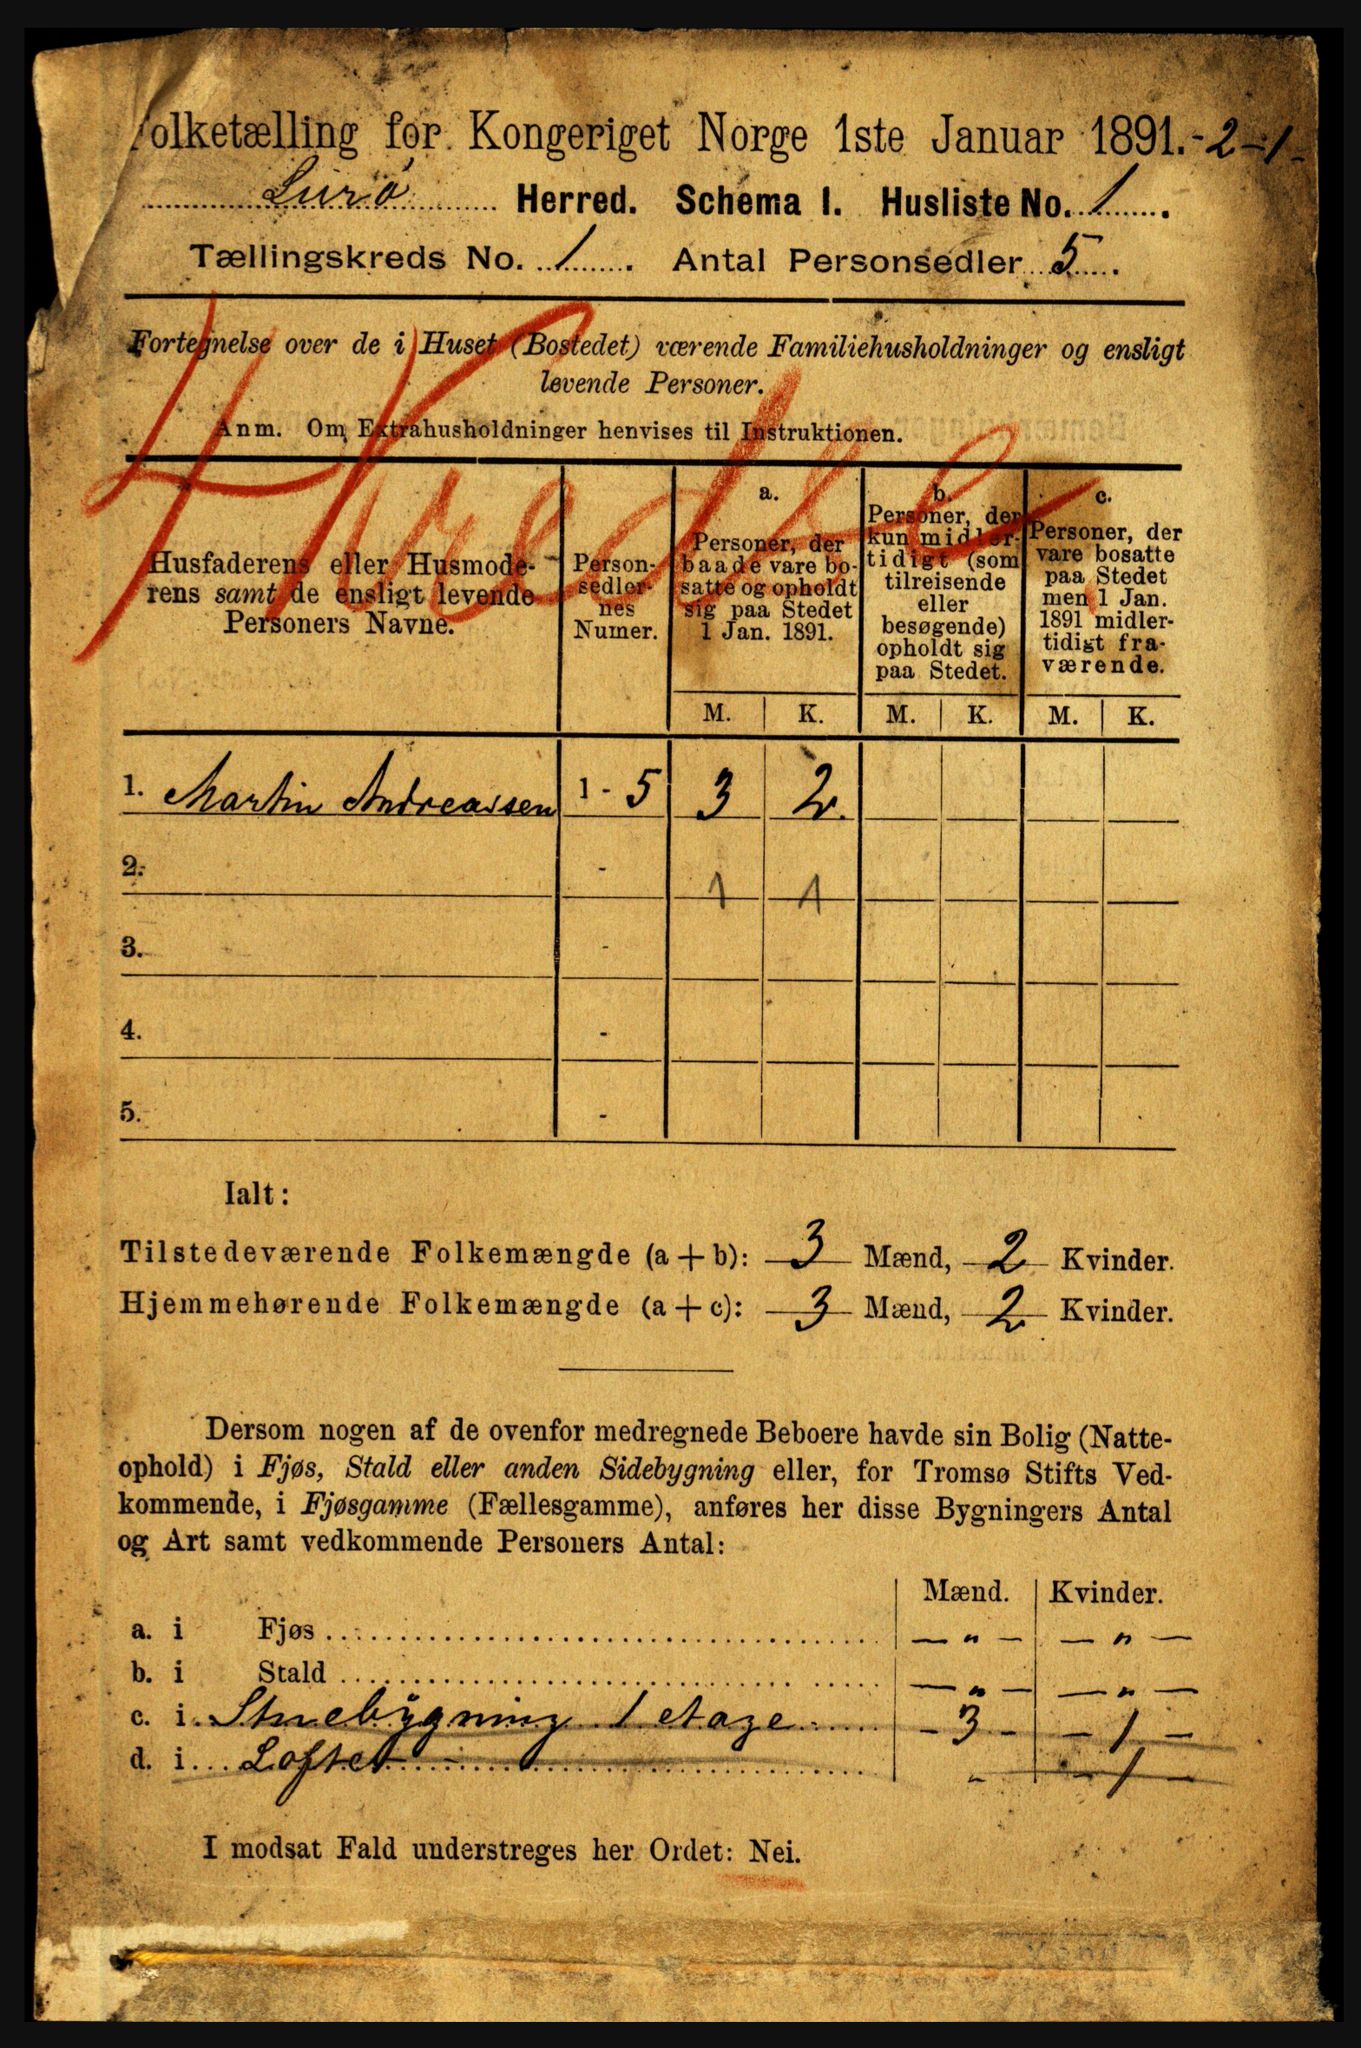 Folketælling for Kongeriget Norge 1ste Januar 1891. -2-1-
Lurö Herred. Schema I. Husliste No. 1.
Tællingskreds No. 1. Antal Personsedler 5.
Fortegnelse over de i Huset (Bostedet) værende Familiehusholdninger og ensligt
levende Personer.
Anm. Om Extrahusholdninger henvises til Instruktionen.
Husfaderens eller Husmode-
rens samt de ensligt levende
Personers Navne.
Person-
sedler-
nes
Numer.
a.
Personer, der
baade vare bo-
satte og opholdt
sig paa Stedet
1 Jan. 1891.
b.
Personer, der
kun midler-
tidigt (som
tilreisende
eller
besøgende)
opholdt sig
paa Stedet.
c.
Personer, der
vare bosatte
paa Stedet
men 1 Jan.
1891 midler-
tidigt fra-
værende.
M. K. M. K. M. K.
1. Martin Andreassen 1 - 5 3 2.
2. - 1 1
3. -
4. -
5. -
Ialt:
Tilstedeværende Folkemængde (a + b): 3 Mænd, 2 Kvinder.
Hjemmehørende Folkemængde (a + c): 3 Mænd, 2 Kvinder.
Dersom nogen af de ovenfor medregnede Beboere havde sin Bolig (Natte-
ophold) i Fjøs, Stald eller anden Sidebygning eller, for Tromsø Stifts Ved-
kommende, i Fjøsgamme (Fællesgamme), anføres her disse Bygningers Antal
og Art samt vedkommende Personers Antal:
Mænd. Kvinder.
a. i Fjøs - " - - " -
b. i Stald - " - - " -
c. i Stuebygning 1 etage - 3 - - 1 -
d. i Loftet - " - 1 -
I modsat Fald understreges her Ordet: Nei.